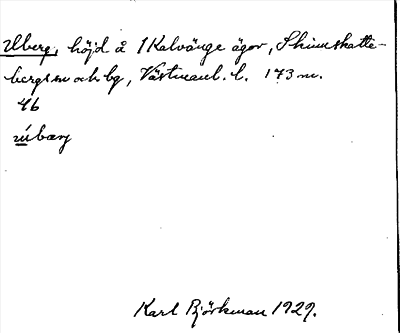 Ulberg, höjd å 1 Kalvänge ägor, Skinnskatte-
bergs sn och bg, Västmanl. l. 173 m.
46
úbærj
Karl Björkman 1929.